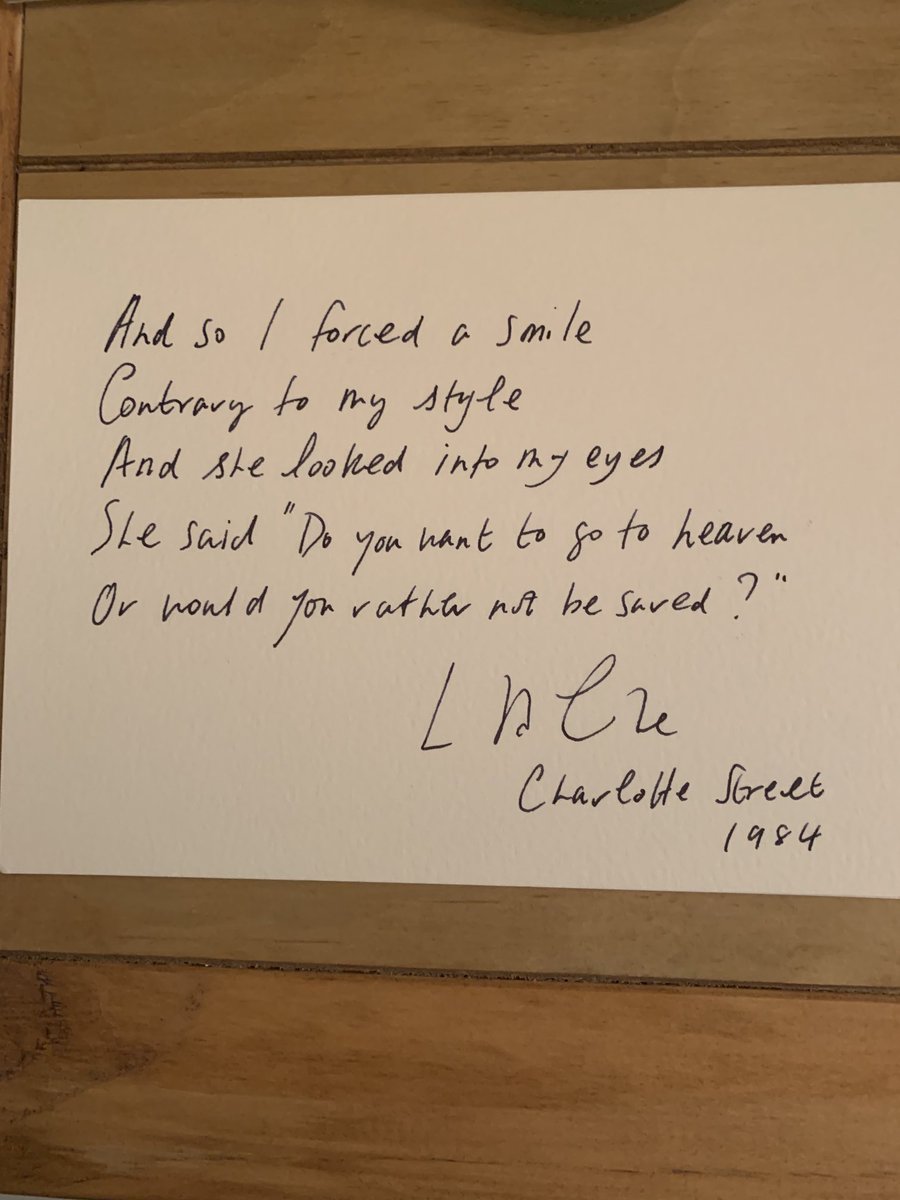 And so I forced a smile
Contrary to my style
And she looked into my eyes
She said "Do you want to go to heaven
Or would you rather not be saved?"
Charlotte Street
1984